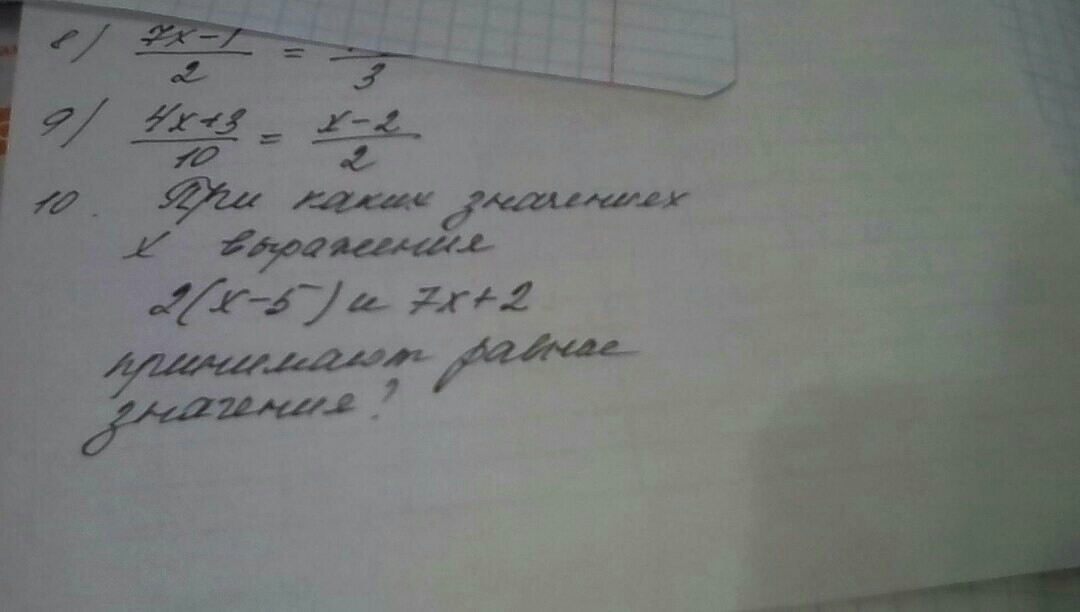 8) (7x-1)/2 = /3
9) (4x+3)/10 = (x-2)/2
10. При каких значениях
x выражения
2(x-5) и 7x+2
принимают равные
значения?